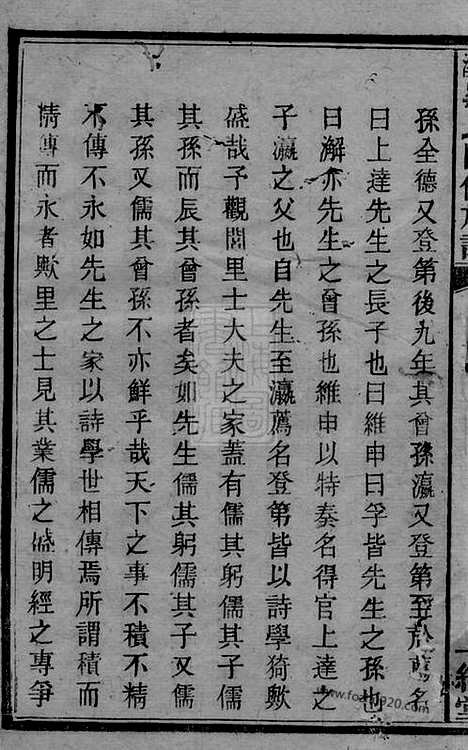 孫全德又登第後九年其曾孫瀛又登第至於薦名
曰上達先生之長子也曰維申曰孚皆先生之孫也
曰澥亦先生之曾孫也維申以特奏名得官上達之
子瀛之父也自先生至瀛薦名登第皆以詩學猗歟
盛哉予觀閭里士大夫之家蓋有儒其躬儒其子儒
其孫而辰其曾孫者矣如先生儒其躬儒其子又儒
其孫又儒其曾孫不亦鮮乎哉天下之事不積不精
不傳不永如先生之家以詩學世相傳焉所謂積而
精傳而永者歟里之士見其業儒之盛明經之專爭
www.fozhu920.com